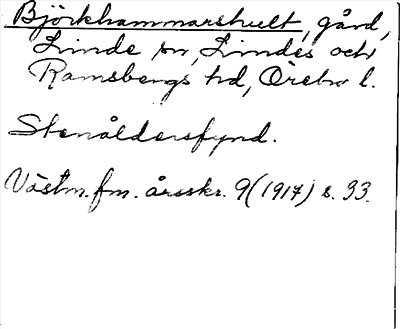 Björkhammarshult, gård,
Linde sn, Lindes och
Ramsbergs hd, Örebro l.
Stenåldersfynd.
Västm. fm. årsskr. 9 (1917) s. 93.